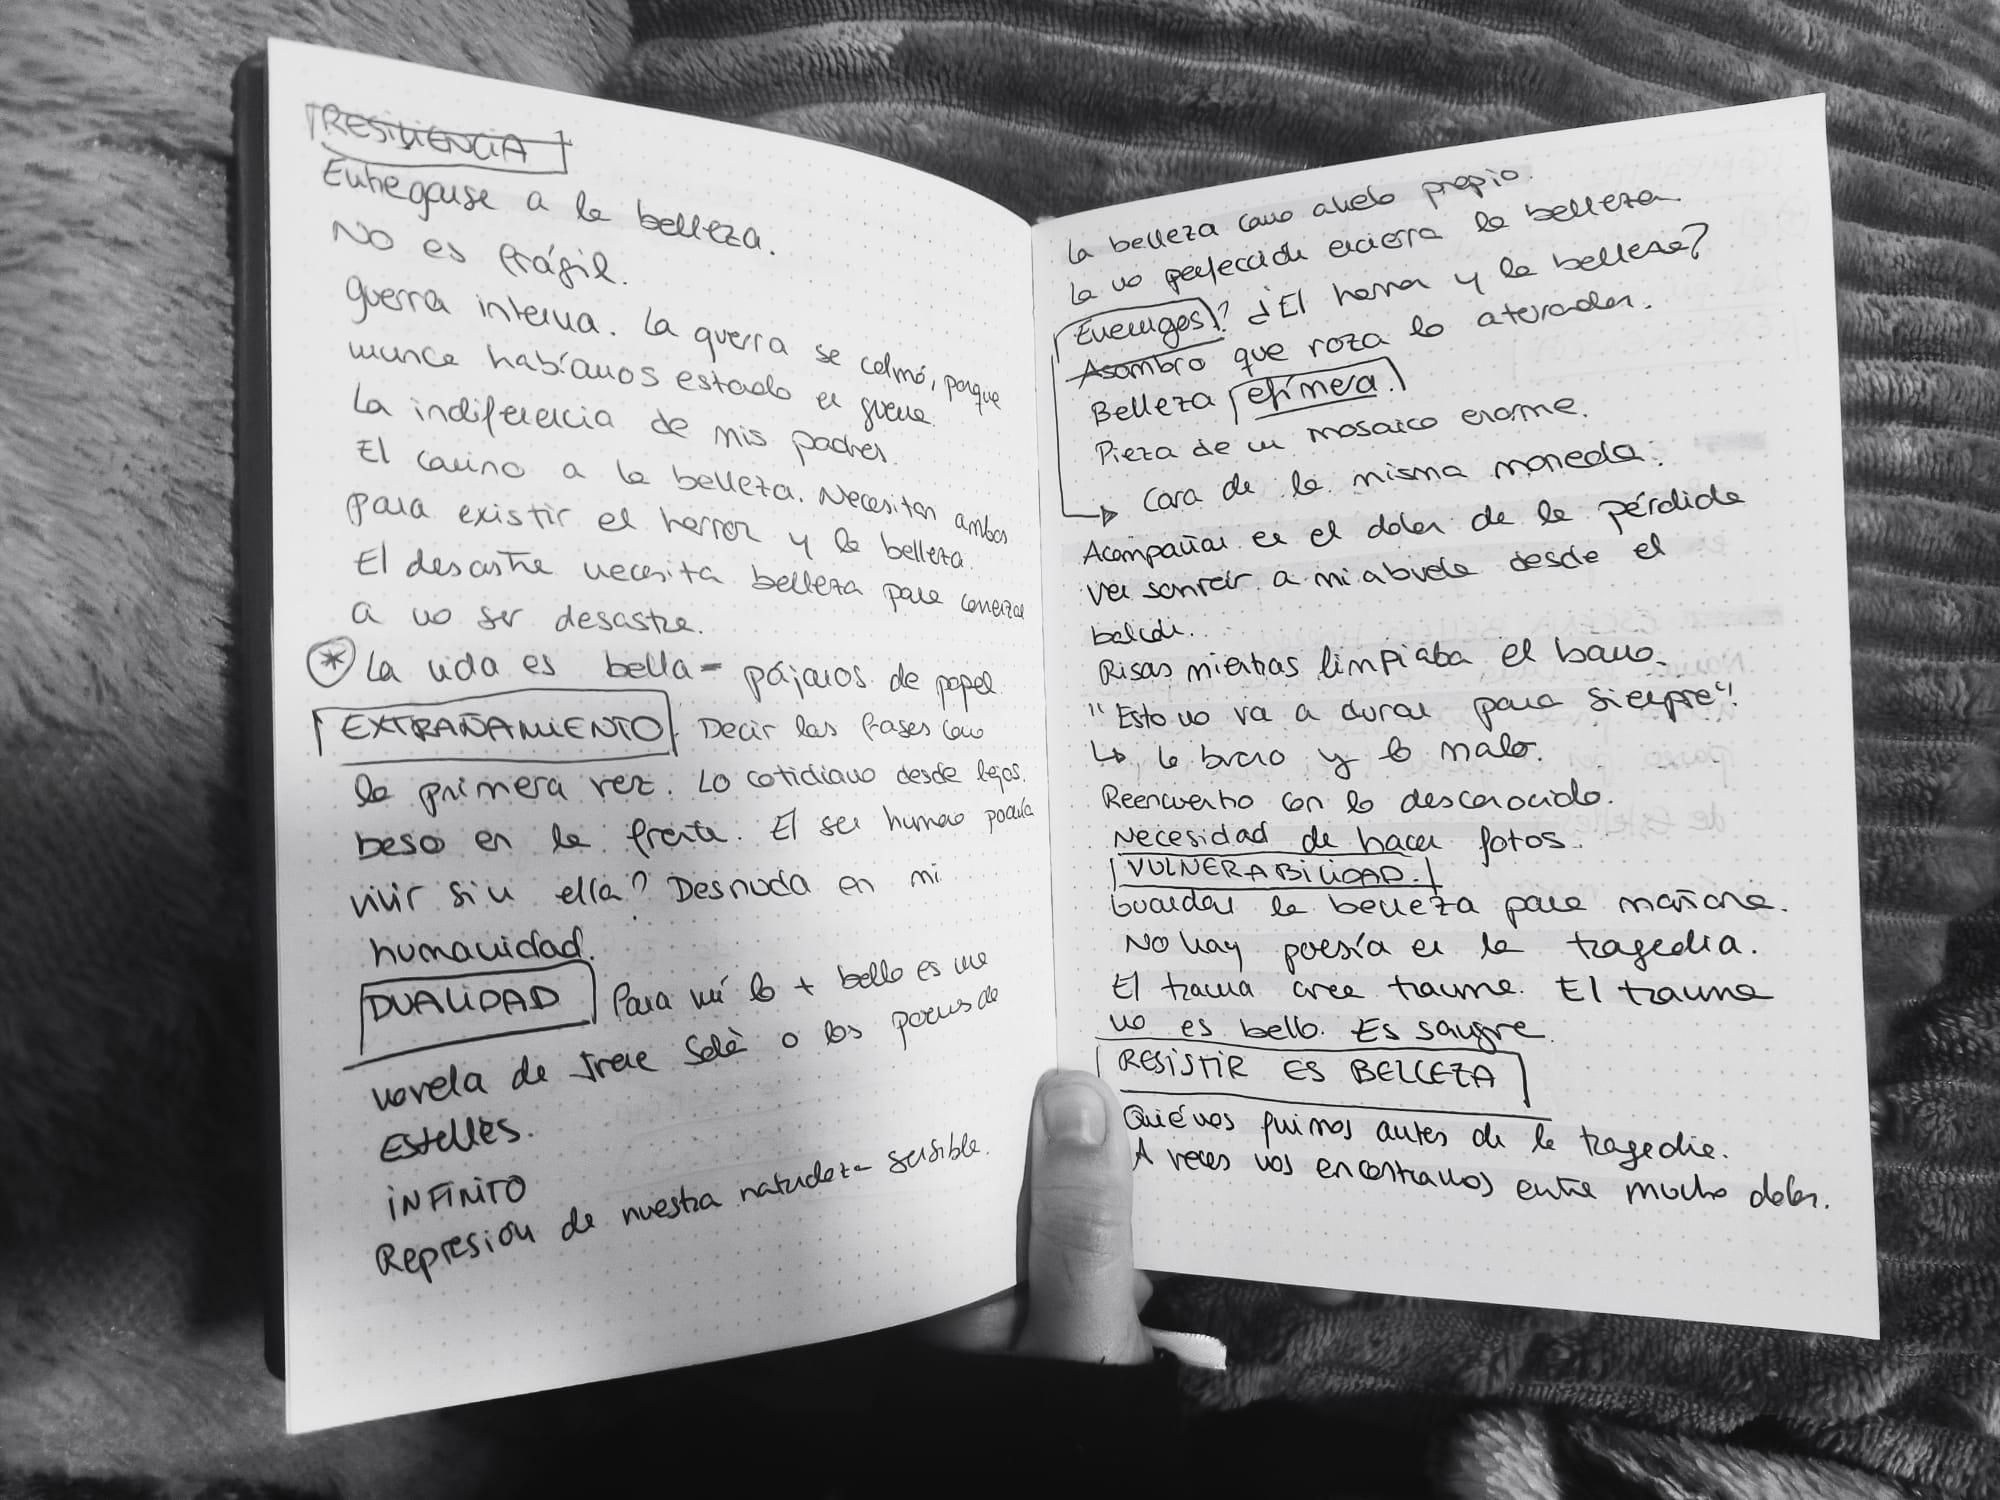 RESILIENCIA
Entregarse a la belleza.
No es frágil.
guerra interna. La guerra se calmó, porque
nunca habíamos estado en guerra.
La indiferencia de mis padres.
El camino a la belleza. Necesitan ambos
para existir el horror y la belleza.
El desastre necesita belleza para comenzar
a no ser desastre.
* La vida es bella - pájaros de papel
EXTRAÑAMIENTO. Decir las frases como
la primera vez. Lo cotidiano desde lejos.
beso en la frente. El ser humano podría
vivir sin ella? Desnuda en mi
humanidad.
DUALIDAD Para mí lo + bello es una
novela de Irene Solà o los poemas de
Estellés.
INFINITO
Represión de nuestra naturaleza sensible.
La belleza como propio.
La no perfección encierra la belleza.
Enemigos? ¿El horror y la belleza?
Asombro que roza lo aterrador.
Belleza efímera.
Pieza de un mosaico enorme.
Cara de la misma moneda.
Acompañar en el dolor de la pérdida
Ver sonreír a mi abuela desde el
balcón.
Risas mientras limpiaba el baño.
"Esto no va a durar para siempre".
↳ lo bueno y lo malo.
Reencuentro con lo desconocido.
Necesidad de hacer fotos.
VULNERABILIDAD.
Guardar la belleza para mañana.
No hay poesía en la tragedia.
El trauma crea trauma. El trauma
no es bello. Es sangre.
RESISTIR ES BELLEZA
Quiénes fuimos antes de la tragedia.
A veces nos encontramos entre mucho dolor.